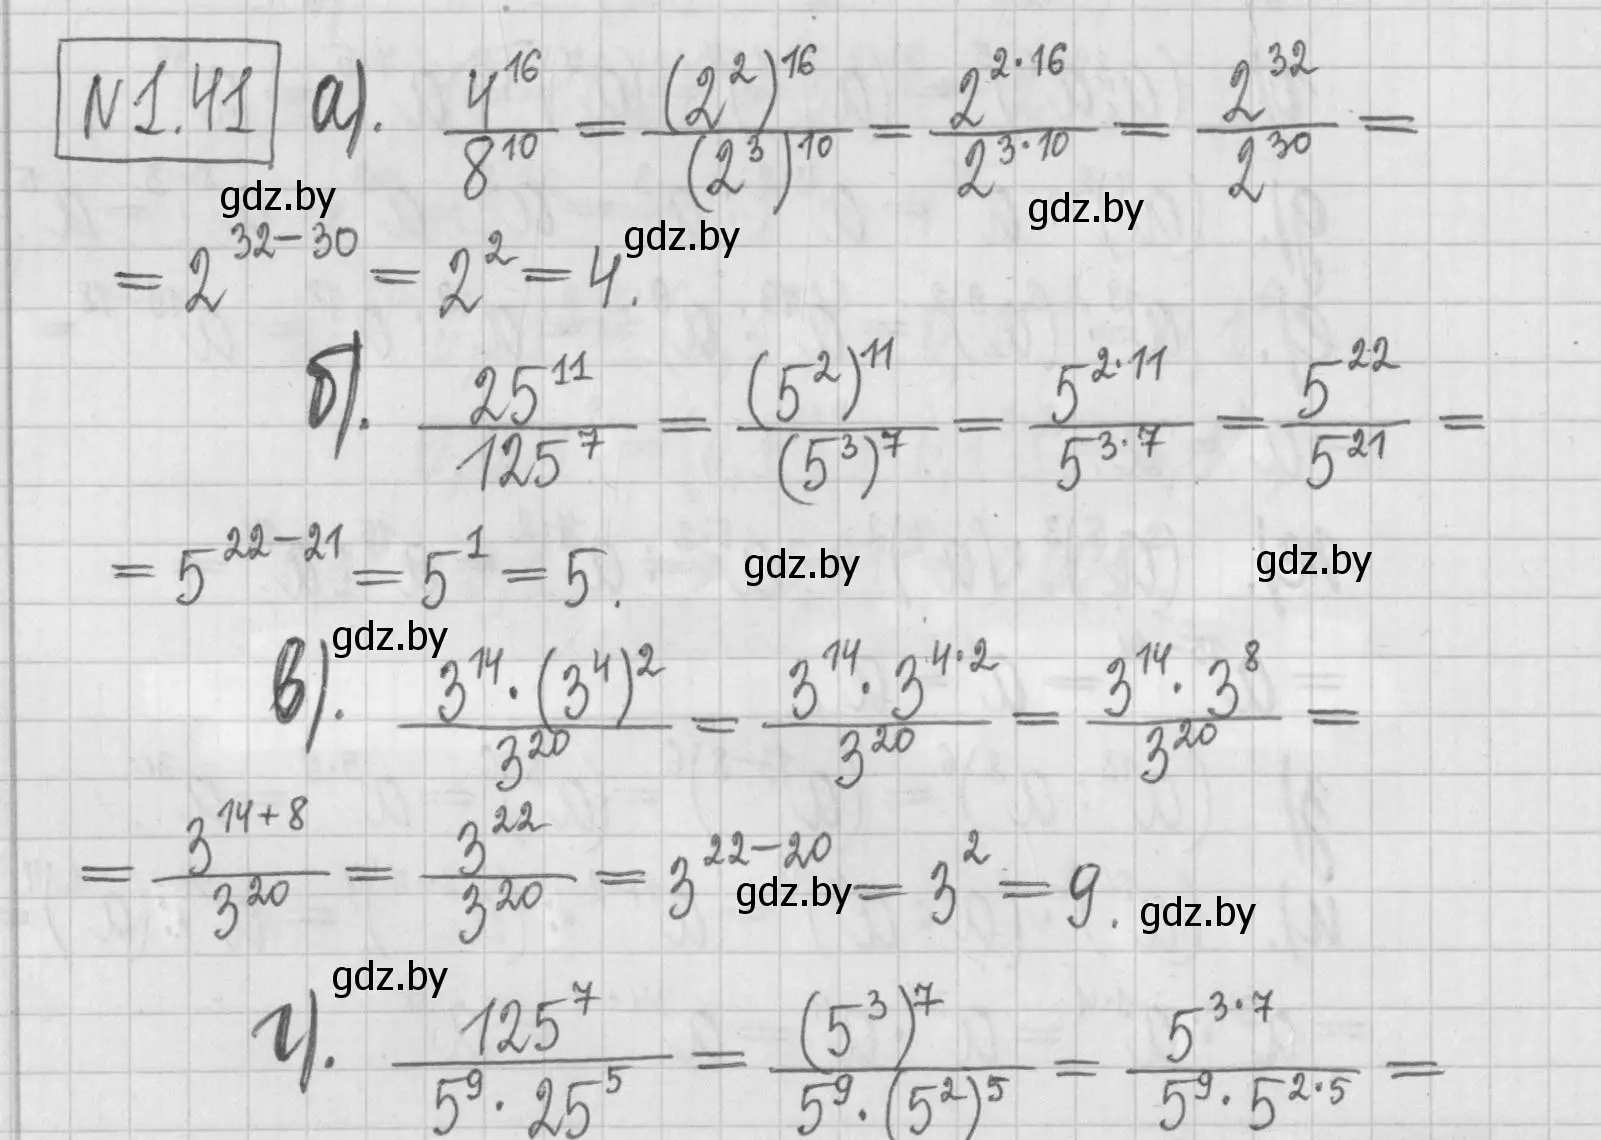 N 1.41 а). 4^16 / 8^10 = (2^2)^16 / (2^3)^10 = 2^(2·16) / 2^(3·10) = 2^32 / 2^30 =
gdz.by gdz.by
= 2^(32-30) = 2^2 = 4. gdz.by
б). 25^11 / 125^7 = (5^2)^11 / (5^3)^7 = 5^(2·11) / 5^(3·7) = 5^22 / 5^21 =
= 5^(22-21) = 5^1 = 5. gdz.by gdz.by
gdz.by
в). 3^14 · (3^4)^2 / 3^20 = 3^14 · 3^(4·2) / 3^20 = 3^14 · 3^8 / 3^20 =
= 3^(14+8) / 3^20 = 3^22 / 3^20 = 3^(22-20) = 3^2 = 9.
gdz.by gdz.by
gdz.by
г). 125^7 / 5^9 · 25^5 = (5^3)^7 / 5^9 · (5^2)^5 = 5^(3·7) / 5^9 · 5^(2·5) =